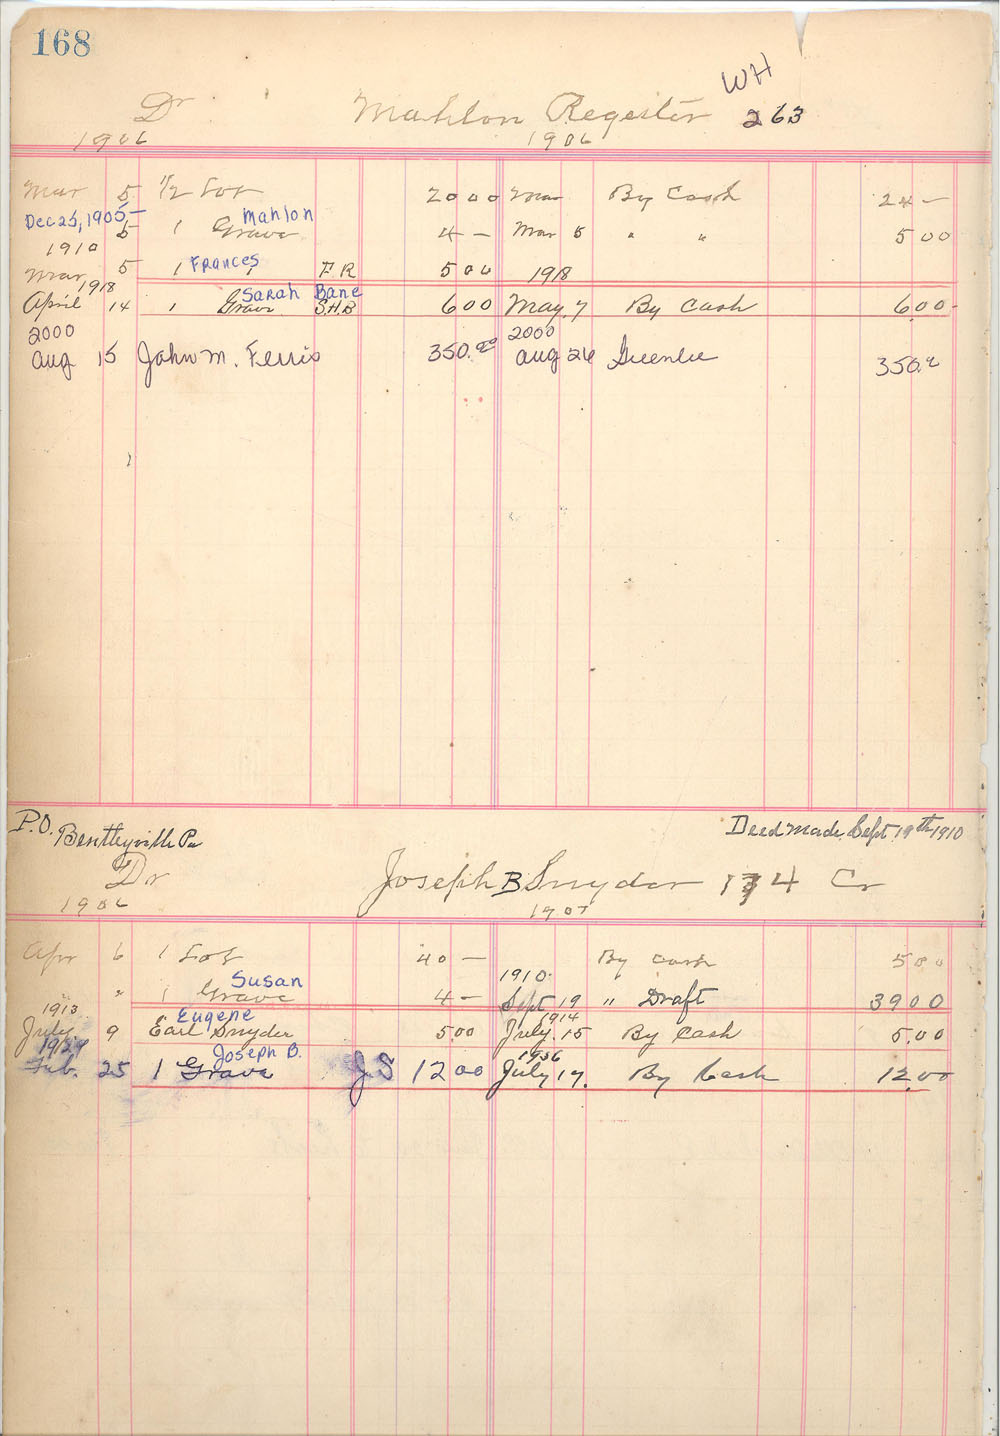 168
WH
Dr Mahlon Register 263
1906 1906
Mar 5 1/2 Lot 20 00 Mar By Cash 24 —
Dec 25, 1905 — Mahlon
5 1 Grave 4 — Mar 5 " " 5 00
1910
Mar 5 1 Frances " F R 5 00 1918
1918 Sarah Bane
April 14 1 Grave S.H.B 6 00 May 7 By Cash 6 00
2000 2000
Aug 15 John M. Ferris 350.00 Aug 26 Greenlee 350.
P.O. Bentleyville Pa Deed Made Sept. 19th 1910
Dr Joseph B Snyder 174 Cr
1906 1907
Apr 6 1 Lot 40 — By Cash 5 00
Susan 1910
" 1 Grave 4 — Sept 19 " Draft 39 00
1913 Eugene 1914
July 9 Earl Snyder 5 00 July 15 By Cash 5.00
1929 Joseph B. 1936
Feb. 25 1 Grave J S 12 00 July 17. By Cash 12.00